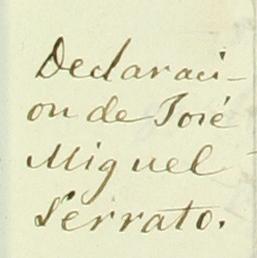 Declaraci-
on de José
Miguel
Serrato.